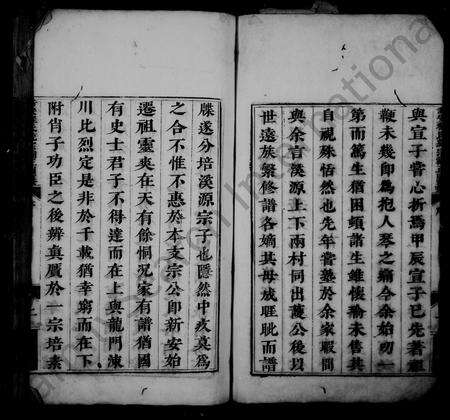 與宣子嘗心折爲甲辰宣子已先著
鞭未幾即爲抱人琴之痛今余始叨一
第而篤生猶困頓諸生雖懷瑜未售其
自視殊恬然也先年嘗塾於余家暇間
與余言溪源上下兩村同出護公後以
世遠族繁修譜各嫡其母成睚眦而譜
牒遂分培溪源宗子也隱然中疚莫爲
之合不惟不惠於本支宗公即新安始
遷祖靈爽在天有餘恫况家有譜猶國
有史士君子不得達而在上與龍門涑
川比烈定是非於千載猶幸窮而在下
附肖子功臣之後辨與贋於一宗培素